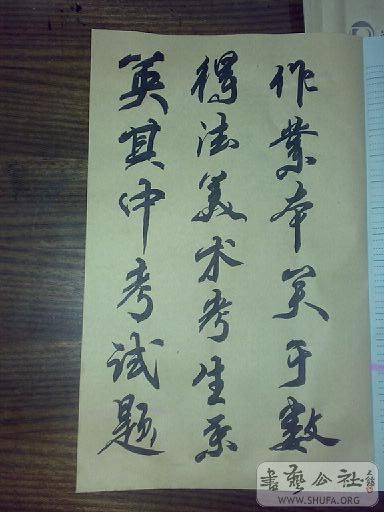 作業本关于数
得法美术考生系
英其中考试题
書藝公社
WWW.SHUFA.ORG